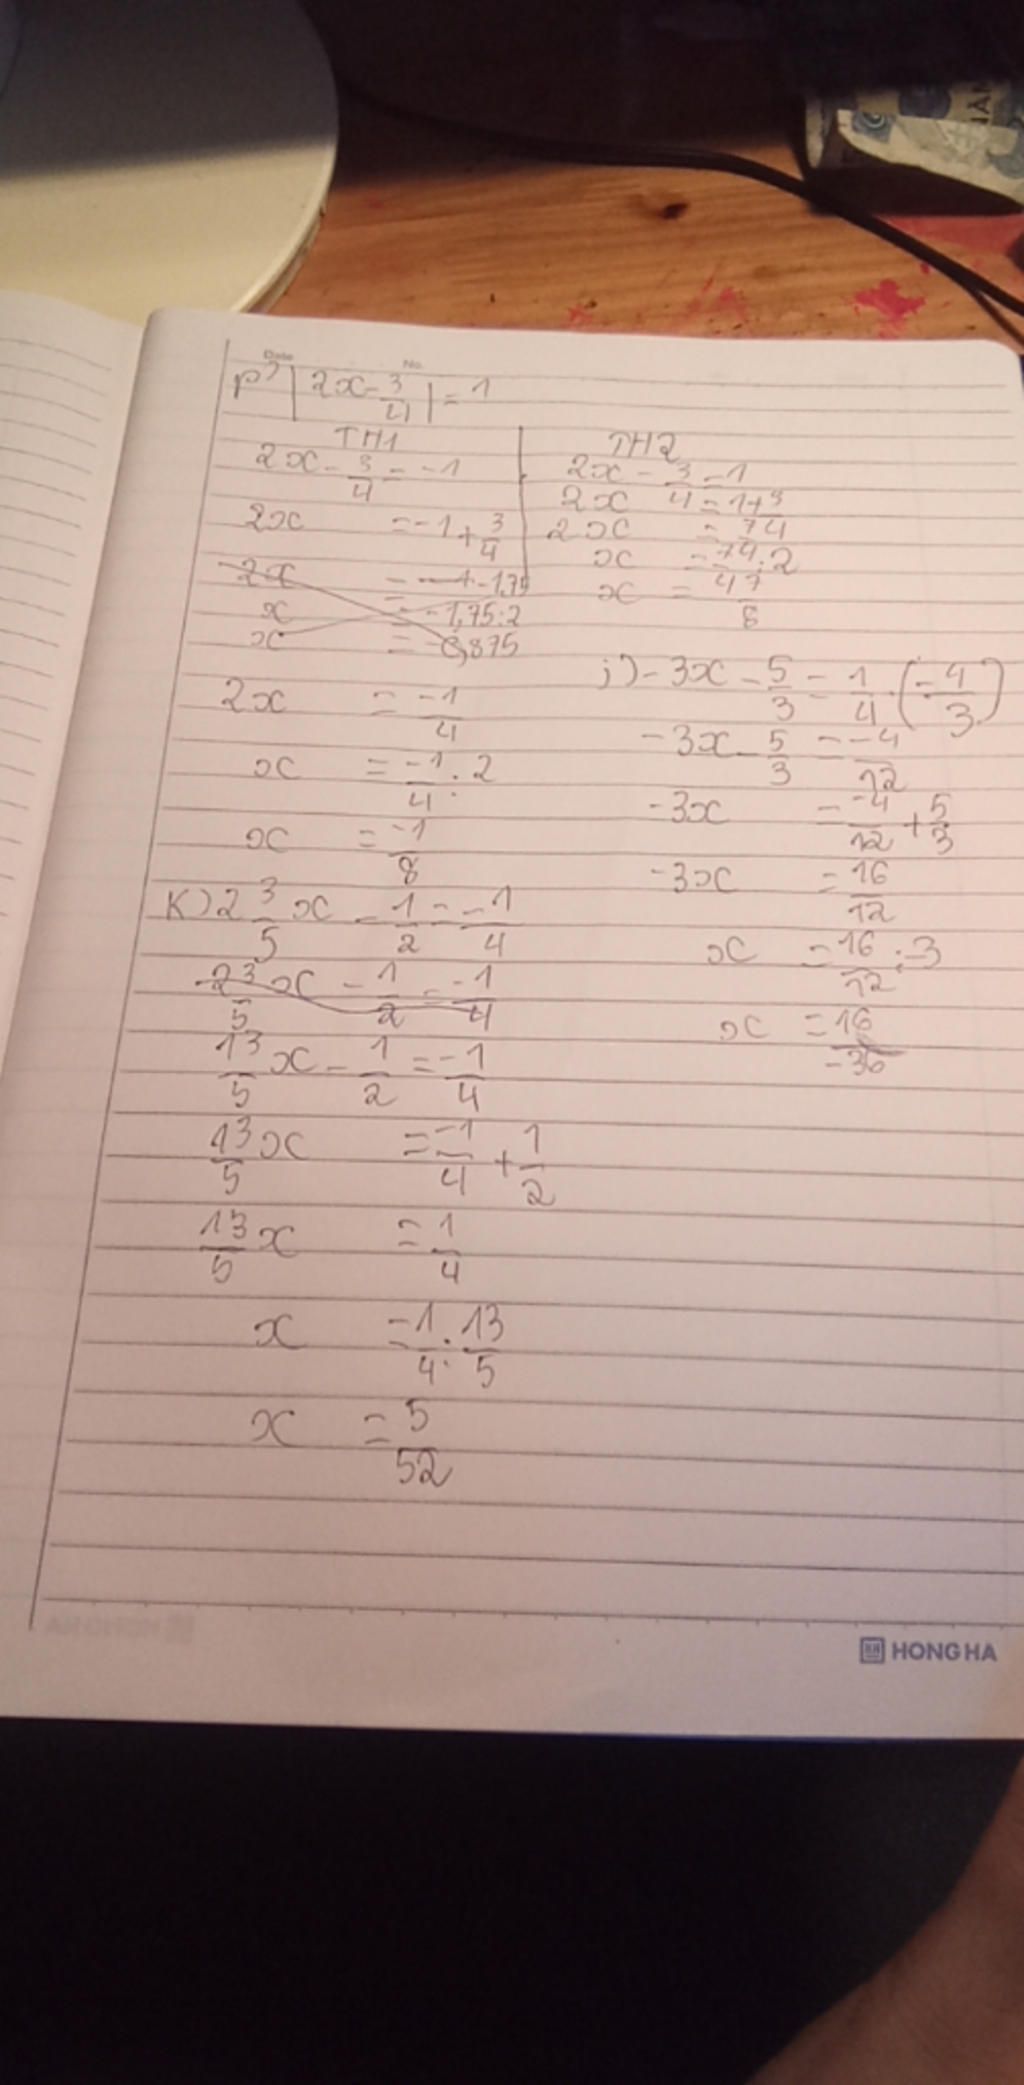 Date No.
p) |2x - 3/4| = 1
TH1
2x - 3/4 = -1
2x = -1 + 3/4
2x = -1,75
x = -1,75 : 2
x = -0,875
2x = -1/4
x = -1/4 : 2
x = -1/8
TH2
2x - 3/4 = 1
2x = 1 + 3/4
2x = 7/4
x = 7/4 : 2
x = 7/8
j) -3x - 5/3 = 1/4 . (-4/3)
-3x - 5/3 = -4/12
-3x = -4/12 + 5/3
-3x = 16/12
x = 16/12 : -3
x = 16/-36
K) 2 3/5 x - 1/2 = -1/4
2 3/5 x - 1/2 = -1/4
13/5 x - 1/2 = -1/4
13/5 x = -1/4 + 1/2
13/5 x = 1/4
x = -1/4 : 13/5
x = 5/52
HONG HA